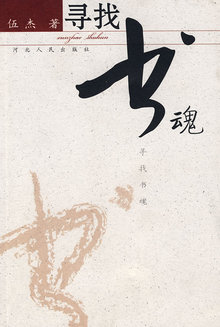 伍杰著
寻找
xunzhao shuhun
河北人民出版社
书
魂
寻找书魂
书